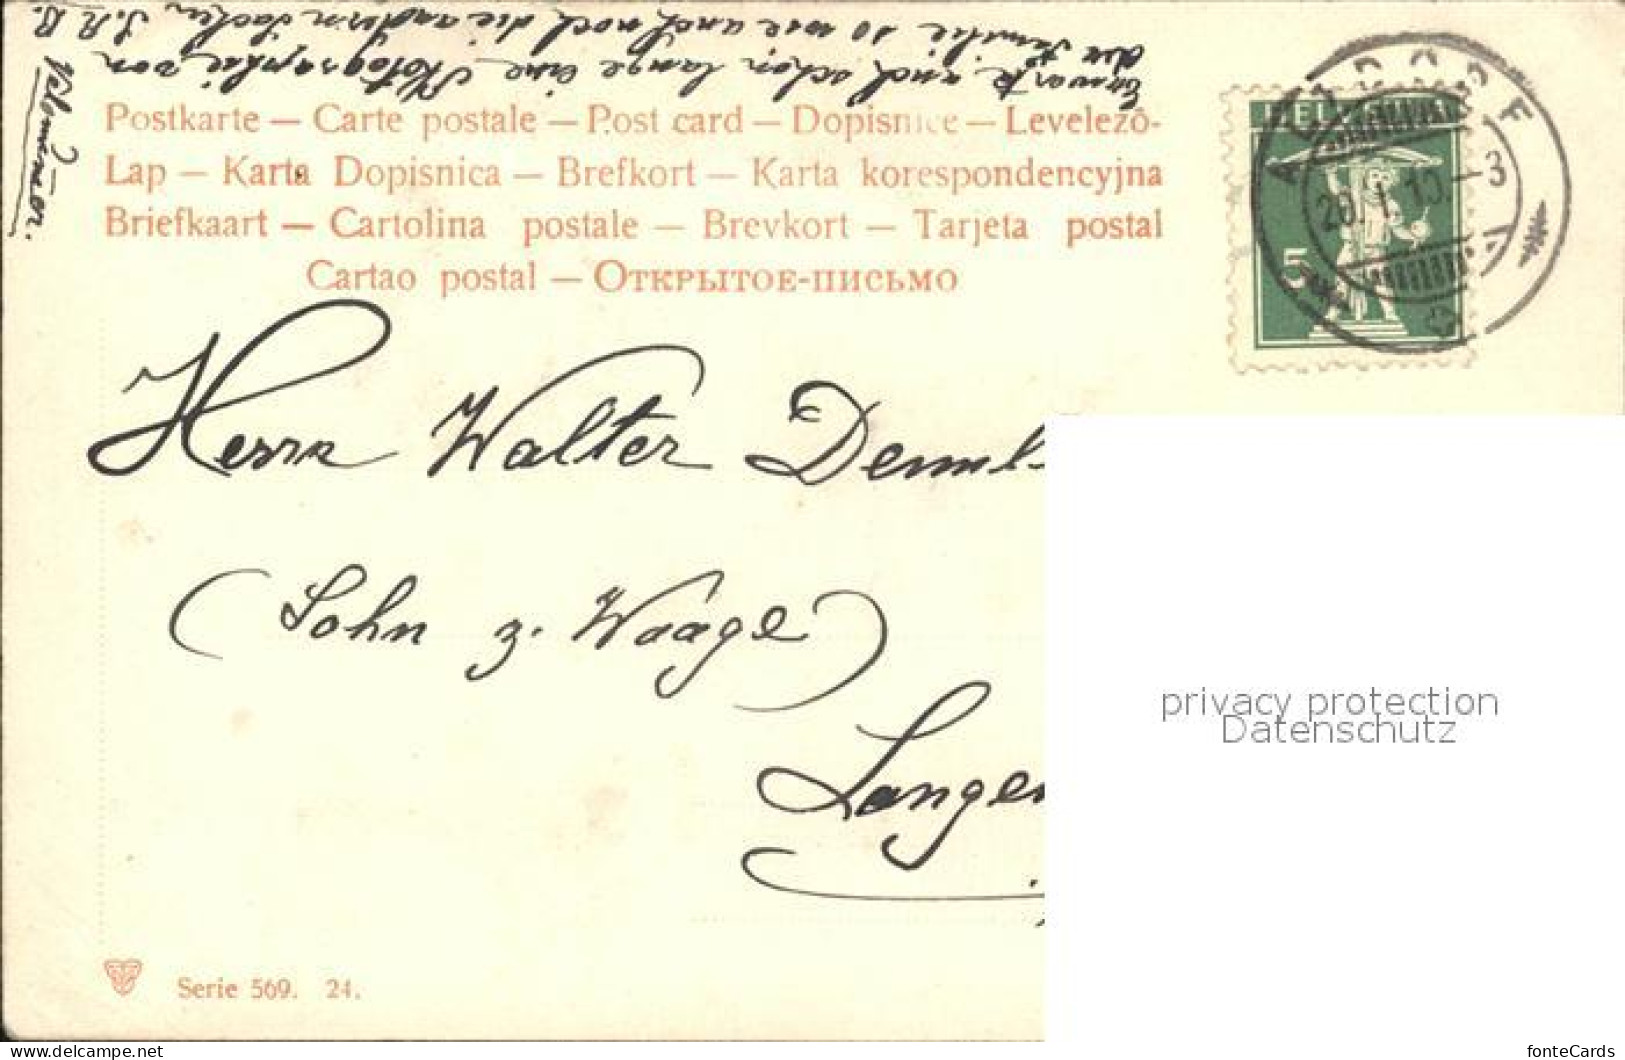 Erwarte auch schon lange eine Photographie von
der Familie so wie auch noch die andern Sachen J. R. B.
Postkarte — Carte postale — Post card — Dopisnice — Levelező-
Lap — Karta Dopisnica — Brefkort — Karta korespondencyjna
Briefkaart — Cartolina postale — Brevkort — Tarjeta postal
Cartao postal — Открытое-письмо
HELVETIA
5
ALTDORF
Herrn Walter
(Sohn z. Waage)
Langen
Serie 569. 24.
privacy protection
Datenschutz
delcampe.net
fonteCards